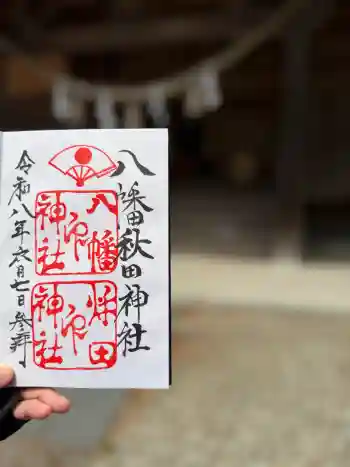 八幡秋田神社
八幡
神社印
保土
神社印
令和八年六月七日参拝